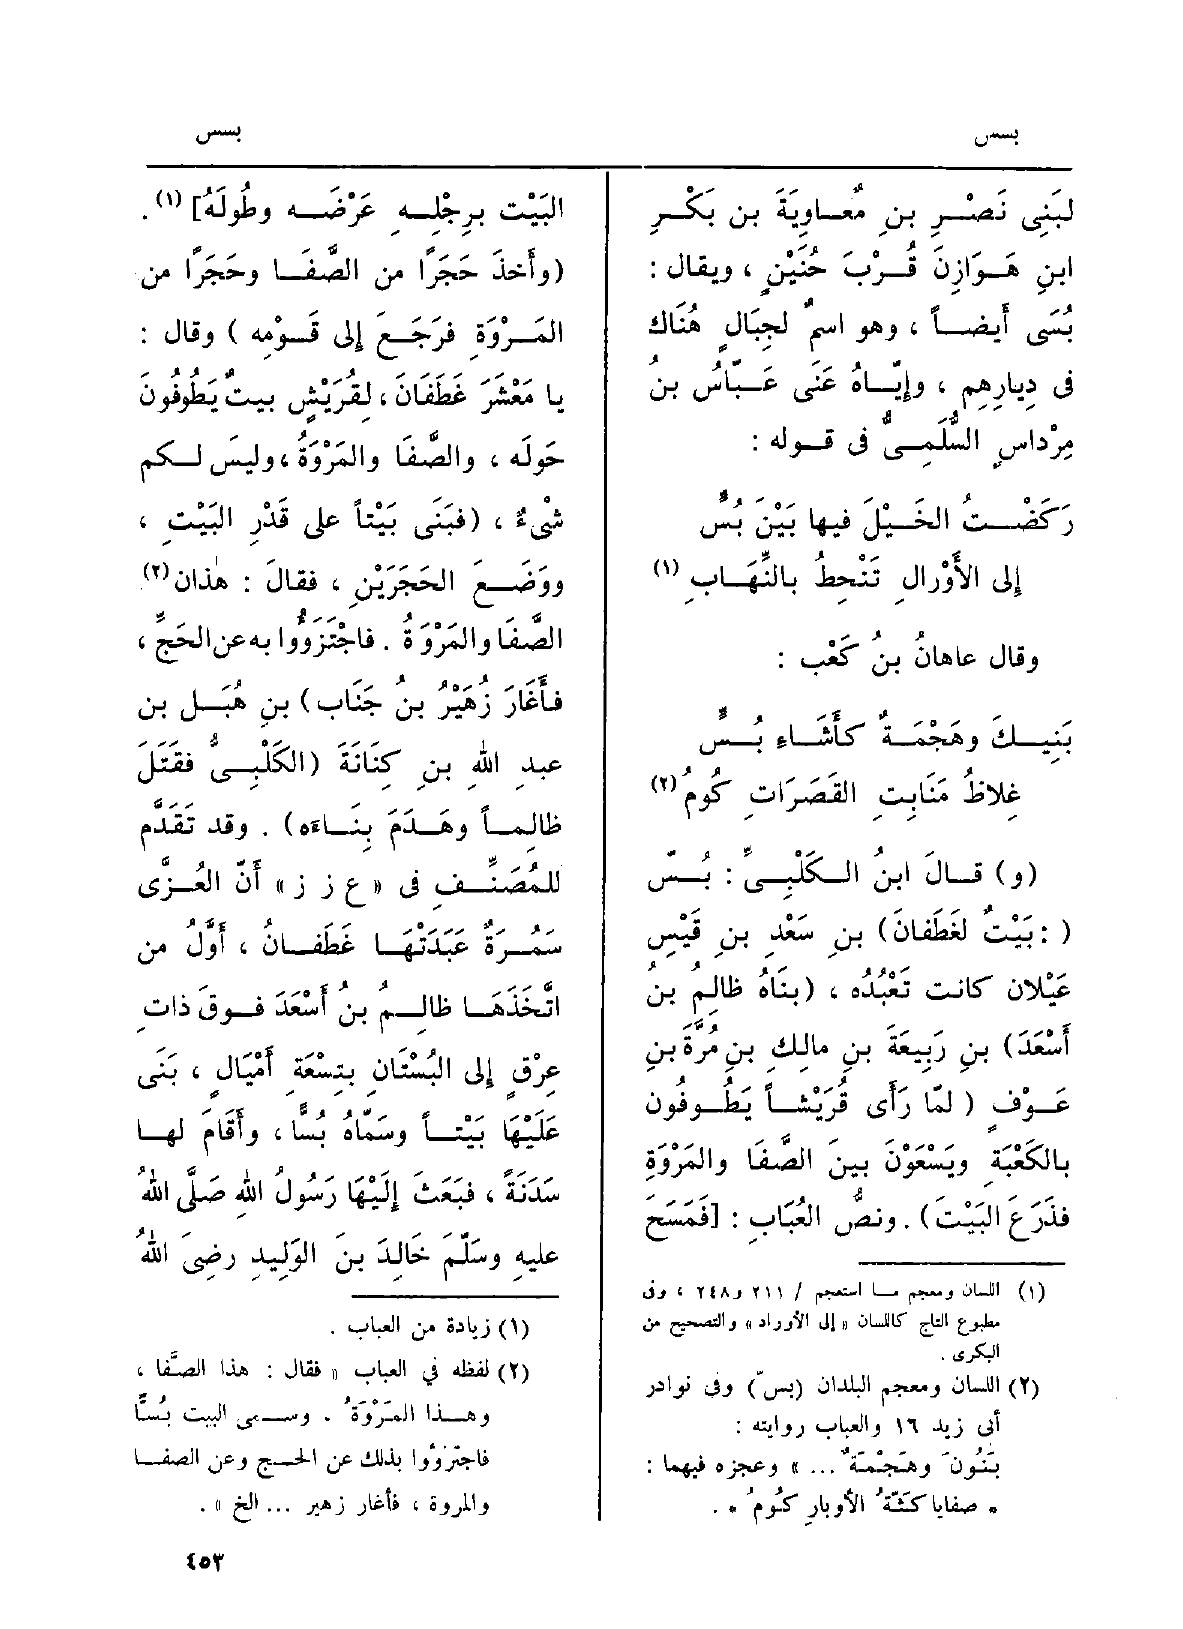 بسس
بسس
لبَنِى نَصْرِ بنِ مُعاويَةَ بنِ بَكْرِ
ابنِ هَوَازِنَ قُرْبَ حُنَيْنٍ ، ويقال :
بُسَى أَيضاً ، وهو اسمٌ لجِبَالٍ هُنَاكَ
فى دِيارِهِم ، وإِيّاهُ عَنَى عَبّاسُ بن
مِرْداسٍ السُّلَمِىُّ فى قوله :
رَكَضْتُ الخَيْلَ فيها بَيْنَ بُسٍّ
إِلى الأَوْرالِ تَنْحِطُ بالنِّهَابِ (١)
وقال عاهانُ بنُ كَعْب :
بَنِيكَ وهَجْمَةٌ كأَشَاءِ بُسٍّ
غِلاظُ مَنَابِتِ القَصَرَاتِ كُومُ (٢)
(و) قالَ ابنُ الكَلْبِىِّ : بُسّ
( : بَيْتٌ لغَطَفانَ) بنِ سَعْدِ بنِ قَيْسِ
عَيْلان كانت تَعْبُدُه ، (بنَاهُ ظالِمُ بن
أَسْعَدَ) بنِ رَبِيعَةَ بنِ مالِكِ بنِ مُرَّةَ بنِ
عَوْفٍ ( لمّا رَأَى قُرَيْشاً يَطُوفُون
بالكَعْبَةِ ويَسْعَوْنَ بينَ الصَّفَا والمَرْوَةِ
فذَرَعَ البَيْتَ) . ونصُّ العُبَابِ : [فَمَسَحَ
(١) اللسان ومعجم ما استعجم / ٢١١ و٢٤٨ ، وفى
مطبوع التاج كاللسان « إلى الأوراد » والتصحيح من
البكرى .
(٢) اللسان ومعجم البلدان (بسّ) وفى نوادر
أبى زيد ١٦ والعباب روايته :
بَنُونَ وهَجْمَةٌ ... » وعجزه فيهما :
* صفايا كَثَّةُ الأوبارِ كُومُ * .
البَيْت بِرِجْلِهِ عَرْضَه وطُولَهُ] (١) .
(وأَخذَ حَجَرًا من الصَّفَا وحَجَرًا من
المَرْوَةِ فرَجَعَ إِلى قَوْمِه ) وقال :
يا مَعْشَرَ غَطَفَانَ ، لقُرَيْشٍ بيتٌ يَطُوفُونَ
حَولَه ، والصَّفَا والمَرْوَةُ ، وليس لكم
شىْءٌ ، (فبَنَى بَيْتاً على قَدْرِ البَيْتِ ،
ووَضَعَ الحَجَرَيْنِ ، فقالَ : هٰذان (٢)
الصَّفَا والمَرْوَةُ . فاجْتَزَؤُوا به عن الحَجِّ ،
فأَغَارَ زُهَيْرُ بنُ جَنَاب) بنِ هُبَل بن
عبدِ اللهِ بنِ كِنَانَةَ (الكَلْبِىُّ فقَتَلَ
ظالِماً وهَدَمَ بِنَاءَه) . وقد تَقَدَّم
للمُصَنِّفِ فى « ع ز ز » أَنّ العُزَّى
سَمُرَةٌ عَبَدَتْهَا غَطَفَانُ ، أَوَّلُ من
اتَّخَذَهَا ظالِمُ بنُ أَسْعَدَ فوقَ ذاتِ
عِرْقٍ إِلى البُسْتَانِ بتِسْعَةِ أَمْيَالٍ ، بَنَى
عَلَيْهَا بَيْتاً وسَمّاهُ بُسًّا ، وأَقَامَ لها
سَدَنَةً ، فبَعَثَ إِلَيْهَا رَسُولُ اللهِ صَلَّى اللهُ
عليهِ وسَلَّمَ خَالِدَ بنَ الوَلِيدِ رضِىَ اللهُ
(١) زيادة من العباب .
(٢) لفظه في العباب « فقال : هذا الصَّفَا ،
وهذا المَرْوَةُ . وسمى البيت بُسًّا
فاجتَزَؤُوا بذلك عن الحج وعن الصفا
والمروة ، فأغار زهير ... الخ » .
٤٥٣